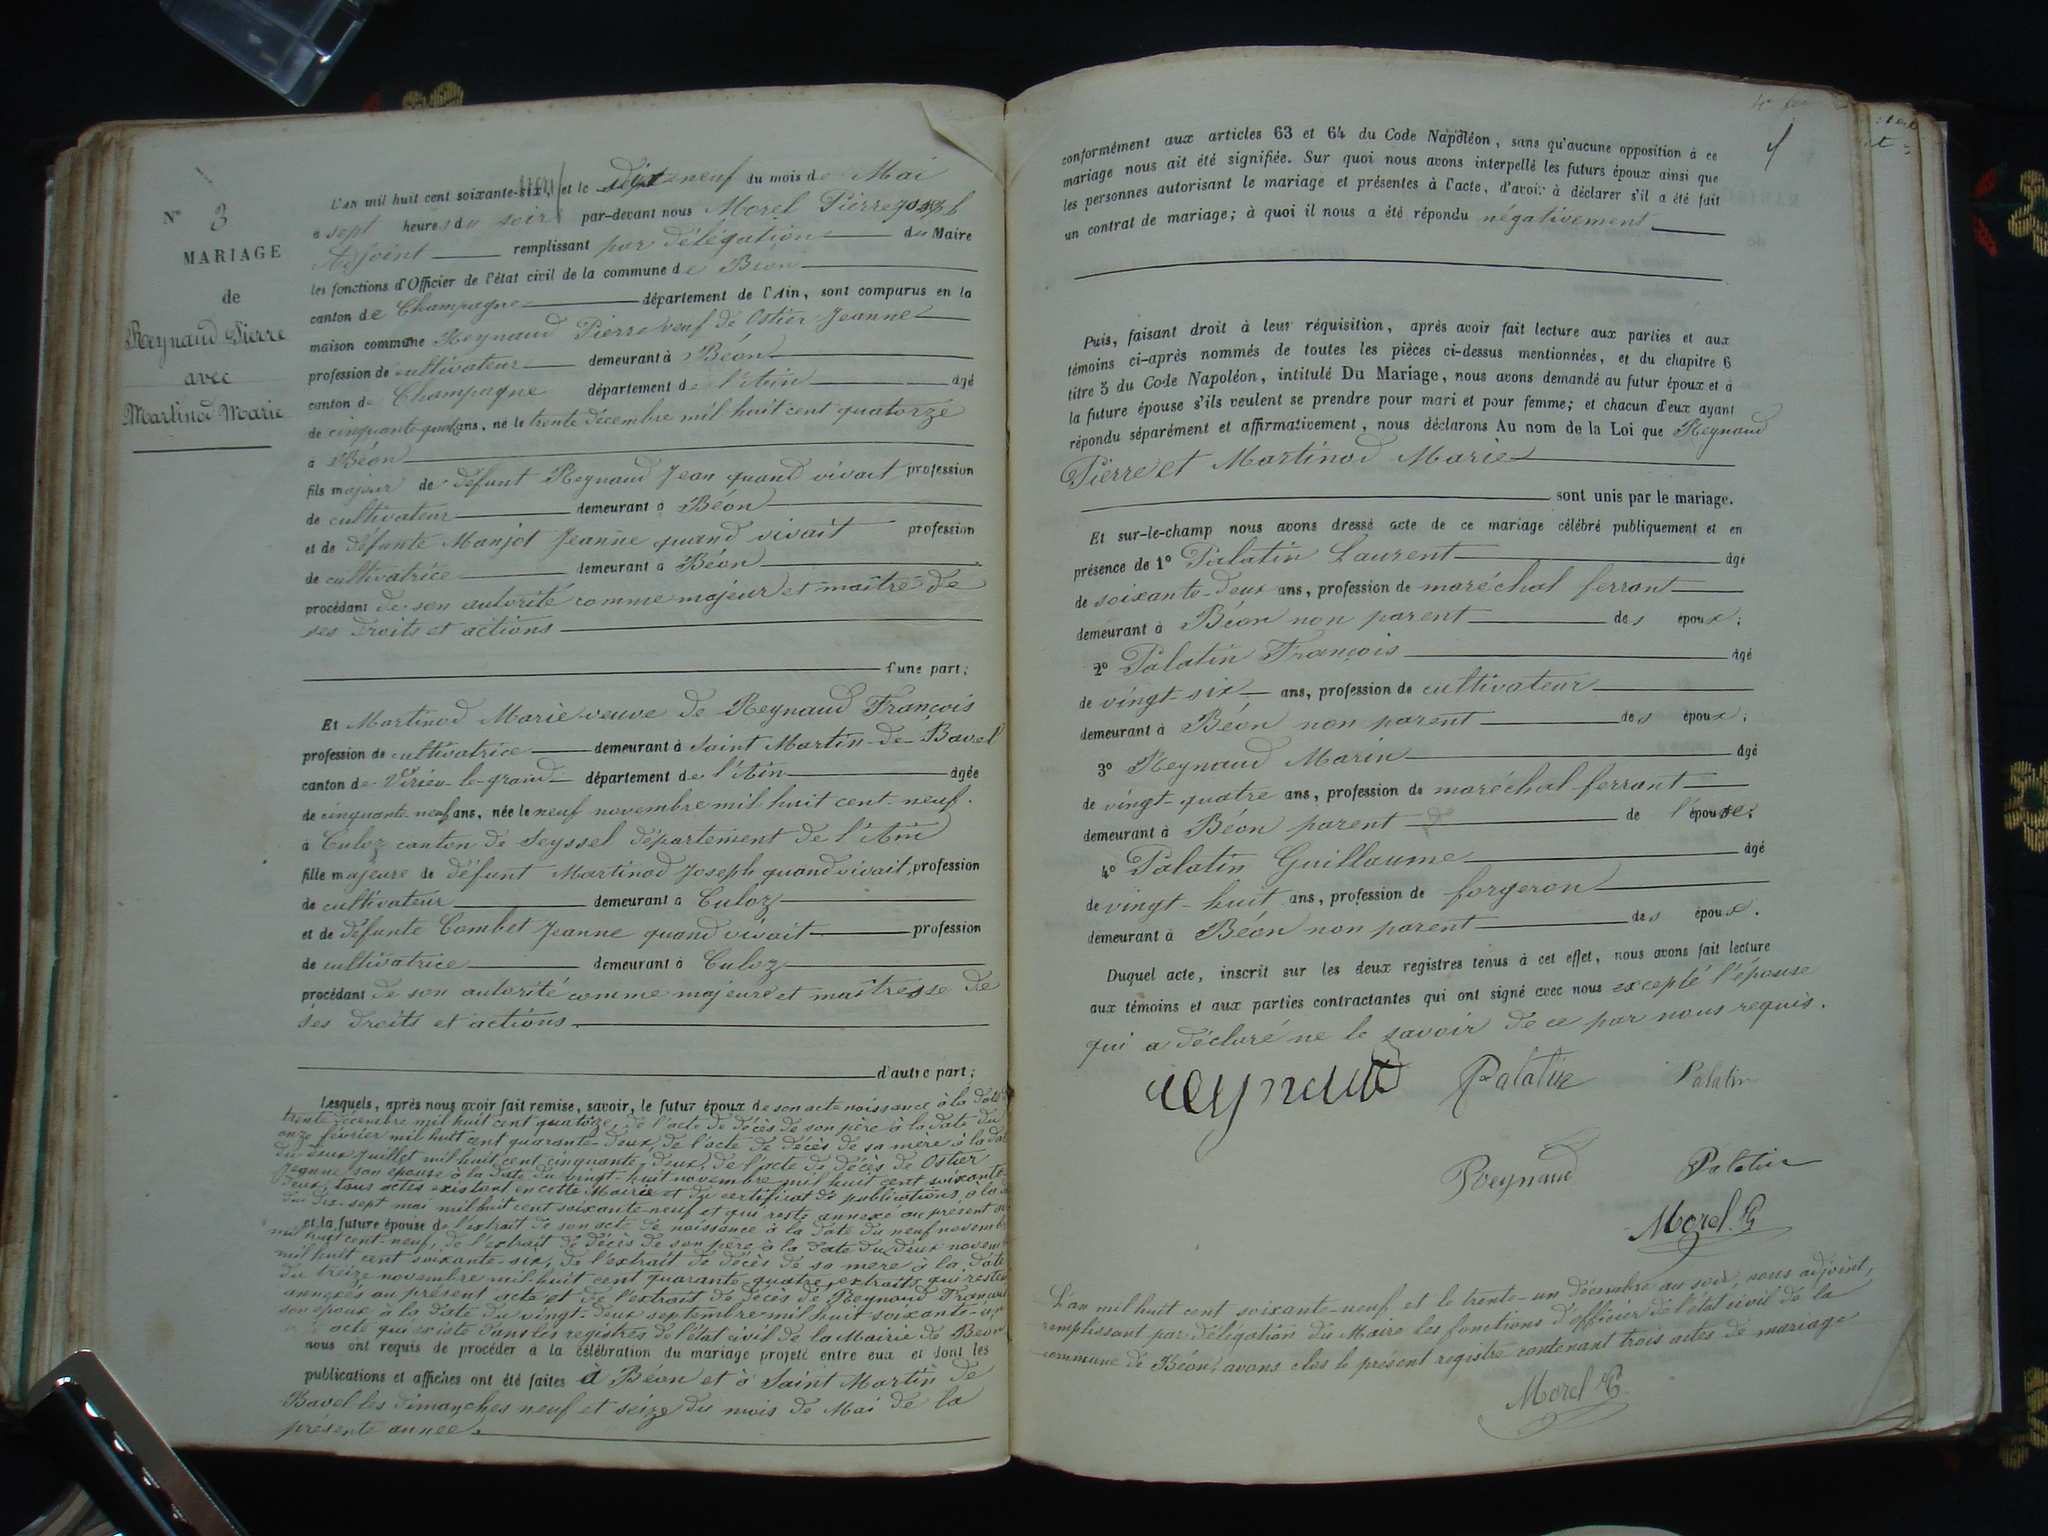 N° 3
MARIAGE
de
Reynaud Pierre
avec
Martinod Marie
L'AN mil huit cent soixante-six neuf et le dix-neuf du mois de Mai
à sept heures du soir par-devant nous Morel Pierre Joseph
Adjoint remplissant par délégation du Maire
les fonctions d'Officier de l'état civil de la commune de Béon
canton de Champagne département de l'Ain, sont comparus en la
maison commune Reynaud Pierre veuf de Ostier Jeanne
profession de cultivateur demeurant à Béon
canton de Champagne département de l'Ain âgé
de cinquante-quatre ans, né le trente décembre mil huit cent quatorze
à Béon
fils majeur de défunt Reynaud Jean quand vivait profession
de cultivateur demeurant à Béon
et de défunte Monjot Jeanne quand vivait profession
de cultivatrice demeurant à Béon
procédant de son autorité comme majeur et maître de
ses droits et actions
d'une part;
Et Martinod Marie veuve de Reynaud François
profession de cultivatrice demeurant à Saint Martin-de-Bavel
canton de Virieu-le-grand département de l'Ain âgée
de cinquante-neuf ans, née le neuf novembre mil huit cent-neuf.
à Culoz canton de Seyssel département de l'Ain
fille majeure de défunt Martinod Joseph quand vivait, profession
de cultivateur demeurant à Culoz
et de défunte Combet Jeanne quand vivait profession
de cultivatrice demeurant à Culoz
procédant de son autorité comme majeure et maîtresse de
ses droits et actions.
d'autre part;
Lesquels, après nous avoir fait remise, savoir, le futur époux de son acte naissance à la date
trente décembre mil huit cent quatorze, de l'acte de décès de son père à la date du
onze février mil huit cent quarante-deux, de l'acte de décès de sa mère à la date
du deux Juillet mil huit cent cinquante-deux, de l'acte de décès de Ostier
Jeanne son épouse à la date du vingt-huit novembre mil huit cent soixante-
deux, tous actes existant en cette Mairie et du certificat de publications, à la
du dix-sept mai mil huit cent soixante-neuf et qui reste annexé au présent
et la future épouse de l'extrait de son acte de naissance à la date du neuf novembre
mil huit cent-neuf, de l'extrait de décès de son père à la date du deux novembre
mil huit cent soixante-six, de l'extrait de décès de sa mère à la date
du treize novembre mil huit cent quarante-quatre, extraits qui restent
annexés au présent acte et de l'extrait de décès de Reynaud François
son époux à la date du vingt-deux septembre mil huit soixante-un,
acte qui existe dans les registres de l'état civil de la Mairie de Béon
nous ont requis de procéder à la célébration du mariage projeté entre eux et dont les
publications et affiches ont été faites à Béon et à Saint Martin de
Bavel les dimanches neuf et seize du mois de Mai de la
présente année.
conformément aux articles 63 et 64 du Code Napoléon, sans qu'aucune opposition à ce
mariage nous ait été signifiée. Sur quoi nous avons interpellé les futurs époux ainsi que
les personnes autorisant le mariage et présentes à l'acte, d'avoir à déclarer s'il a été fait
un contrat de mariage; à quoi il nous a été répondu négativement
Puis, faisant droit à leur réquisition, après avoir fait lecture aux parties et aux
témoins ci-après nommés de toutes les pièces ci-dessus mentionnées, et du chapitre 6
titre 5 du Code Napoléon, intitulé Du Mariage, nous avons demandé au futur époux et à
la future épouse s'ils veulent se prendre pour mari et pour femme; et chacun d'eux ayant
répondu séparément et affirmativement, nous déclarons Au nom de la Loi que Reynaud
Pierre et Martinod Marie
sont unis par le mariage.
Et sur-le-champ nous avons dressé acte de ce mariage célébré publiquement et en
présence de 1° Palatin Laurent âgé
de soixante-deux ans, profession de maréchal ferrant
demeurant à Béon non parent des époux;
2° Palatin François âgé
de vingt-six ans, profession de cultivateur
demeurant à Béon non parent des époux;
3° Reynaud Marin âgé
de vingt-quatre ans, profession de maréchal ferrant
demeurant à Béon parent de l'épouse;
4° Palatin Guillaume âgé
de vingt-huit ans, profession de forgeron
demeurant à Béon non parent des époux.
Duquel acte, inscrit sur les deux registres tenus à cet effet, nous avons fait lecture
aux témoins et aux parties contractantes qui ont signé avec nous excepté l'épouse
qui a déclaré ne le savoir de ce par nous requis.
reynaud Palatin Palatin
Reynaud Palatin
Morel. P
L'an mil huit cent soixante-neuf et le trente-un décembre au soir, nous adjoint,
remplissant par délégation du Maire les fonctions d'officier de l'état civil de la
commune de Béon, avons clos le présent registre contenant trois actes de mariage
Morel P